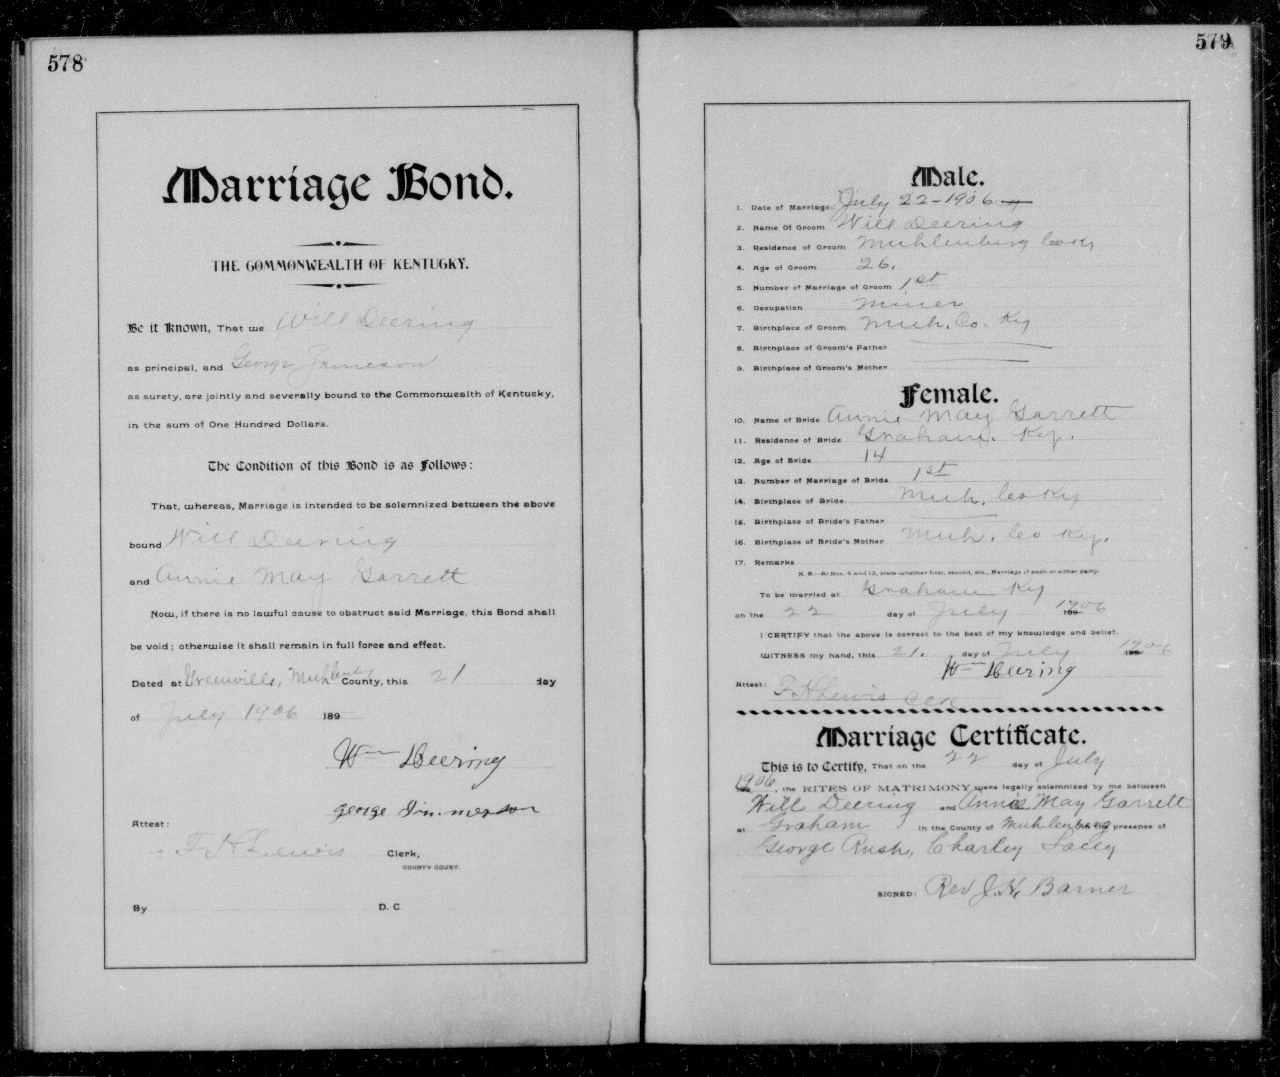 578
Marriage Bond.
THE COMMONWEALTH OF KENTUCKY.
Be it Known, That we Will Deering
as principal, and George Jameson
as surety, are jointly and severally bound to the Commonwealth of Kentucky,
in the sum of One Hundred Dollars.
The Condition of this Bond is as Follows:
That, whereas, Marriage is intended to be solemnized between the above
bound Will Deering
and Annie May Garrett
Now, if there is no lawful cause to obstruct said Marriage, this Bond shall
be void; otherwise it shall remain in full force and effect.
Dated at Greenville, Muhlenbg County, this 21 day
of July 1906 189
Wm Deering
george Immerson
Attest:
F H Lewis Clerk,
COUNTY COURT.
By D. C
579
Male.
1. Date of Marriage July 22-1906
2. Name Of Groom Will Deering
3. Residence of Groom Muhlenburg Co Ky
4. Age of Groom 26.
5. Number of Marriage of Groom 1st
6. Occupation Miner
7. Birthplace of Groom Muh. Co. Ky
8. Birthplace of Groom's Father
9. Birthplace of Groom's Mother
Female.
10. Name of Bride Annie May Garrett
11. Residence of Bride Graham. Ky.
12. Age of Bride 14
13. Number of Marriage of Bride 1st
14. Birthplace of Bride Muh. Co Ky
15. Birthplace of Bride's Father
16. Birthplace of Bride's Mother Muh. Co Ky.
17. Remarks
N. B.—At Nos. 5 and 13, state whether first, second, etc., Marriage of each or either party.
To be married at Graham Ky
on the 22 day of July 1906
I CERTIFY that the above is correct to the best of my knowledge and belief.
WITNESS my hand, this 21. day of July 1906
Wm Deering
Attest: F H Lewis Clk
Marriage Certificate.
This is to Certify, That on the 22 day of July
1906, the RITES OF MATRIMONY were legally solemnized by me between
Will Deering and Annie May Garrett
at Graham in the County of Muhlenburg the presence of
George Rush, Charley Lacey
SIGNED: Rev J. H. Barner